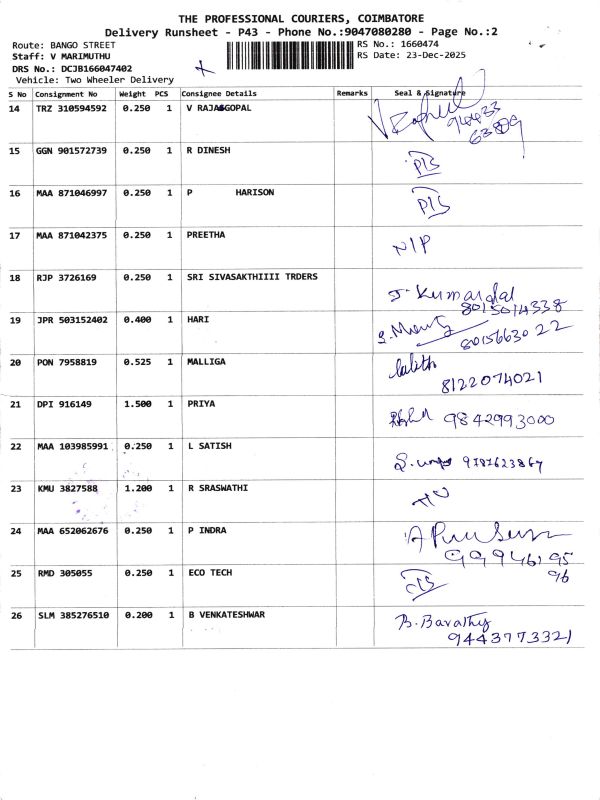 THE PROFESSIONAL COURIERS, COIMBATORE
Delivery Runsheet - P43 - Phone No.:9047080280 - Page No.:2
Route: BANGO STREET RS No.: 1660474
Staff: V MARIMUTHU RS Date: 23-Dec-2025
DRS No.: DCJB166047402
Vehicle: Two Wheeler Delivery
S No Consignment No Weight PCS Consignee Details Remarks Seal & Signature
14 TRZ 310594592 0.250 1 V RAJAGOPAL
94433
63899
15 GGN 901572739 0.250 1 R DINESH
16 MAA 871046997 0.250 1 P HARISON
17 MAA 871042375 0.250 1 PREETHA N/P
18 RJP 3726169 0.250 1 SRI SIVASAKTHIIII TRDERS
8015014338
19 JPR 503152402 0.400 1 HARI
8015663022
20 PON 7958819 0.525 1 MALLIGA lalith
8122074021
21 DPI 916149 1.500 1 PRIYA 9842993000
22 MAA 103985991 0.250 1 L SATISH 9787623867
23 KMU 3827588 1.200 1 R SRASWATHI
24 MAA 652062676 0.250 1 P INDRA
99946195
96
25 RMD 305055 0.250 1 ECO TECH
26 SLM 385276510 0.200 1 B VENKATESHWAR B. Barathy
9443773321